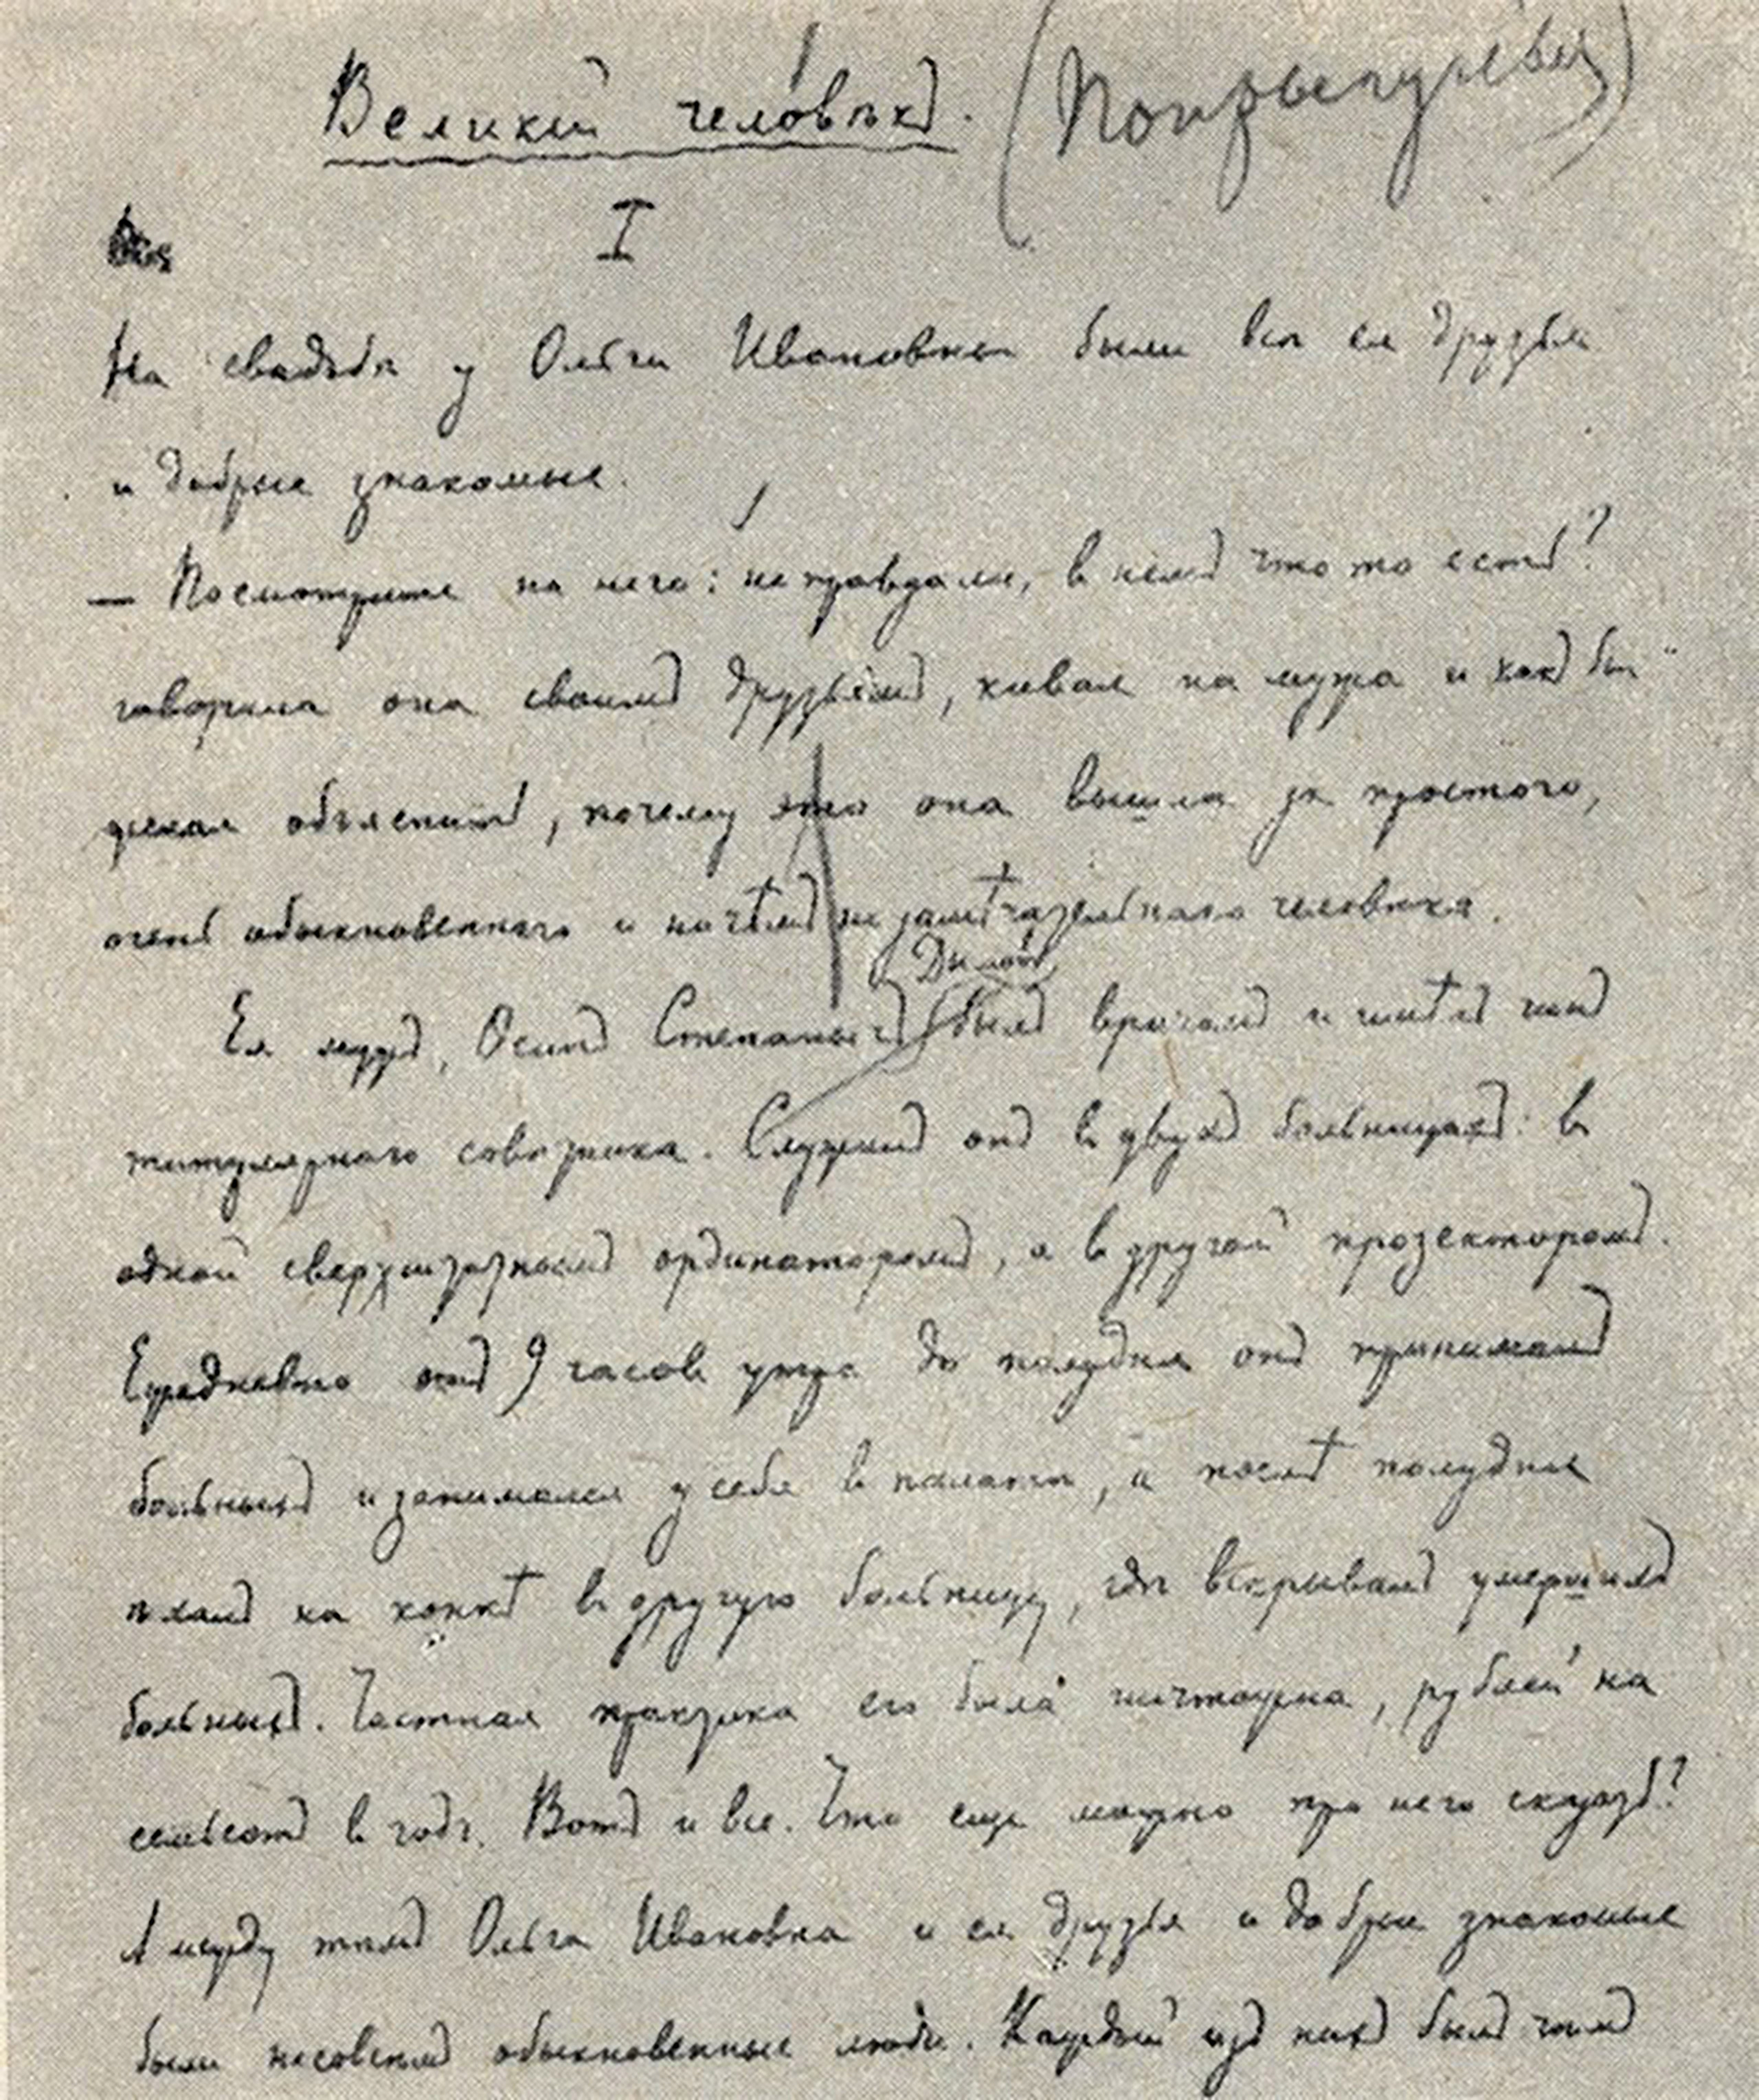 Великій человѣкъ.
I
На свадьбѣ у Ольги Ивановны были всѣ ея друзья
и добрые знакомые.
— Посмотрите на него: не правда ли, въ немъ что то есть?
говорила она своимъ друзьямъ, кивая на мужа и какъ бы
желая объяснить, почему это она вышла за простого,
очень обыкновеннаго и ничѣмъ не замѣчательнаго человѣка.
Дымовъ,
Ея мужъ, Осипъ Степанычъ былъ врачомъ и имѣлъ чинъ
титулярнаго совѣтника. Служилъ онъ въ двухъ больницахъ: въ
одной сверхштатнымъ ординаторомъ, а въ другой прозекторомъ.
Ежедневно отъ 9 часовъ утра до полудня онъ принималъ
больныхъ и занимался у себя въ палатѣ, а послѣ полудня
ѣхалъ на конкѣ въ другую больницу, гдѣ вскрывалъ умершихъ
больныхъ. Частная практика его была ничтожна, рублей на
семьсотъ въ годъ. Вотъ и все. Что еще можно про него сказать?
А между тѣмъ Ольга Ивановна и ея друзья и добрые знакомые
были не совсѣмъ обыкновенные люди. Каждый изъ нихъ былъ чѣмъ